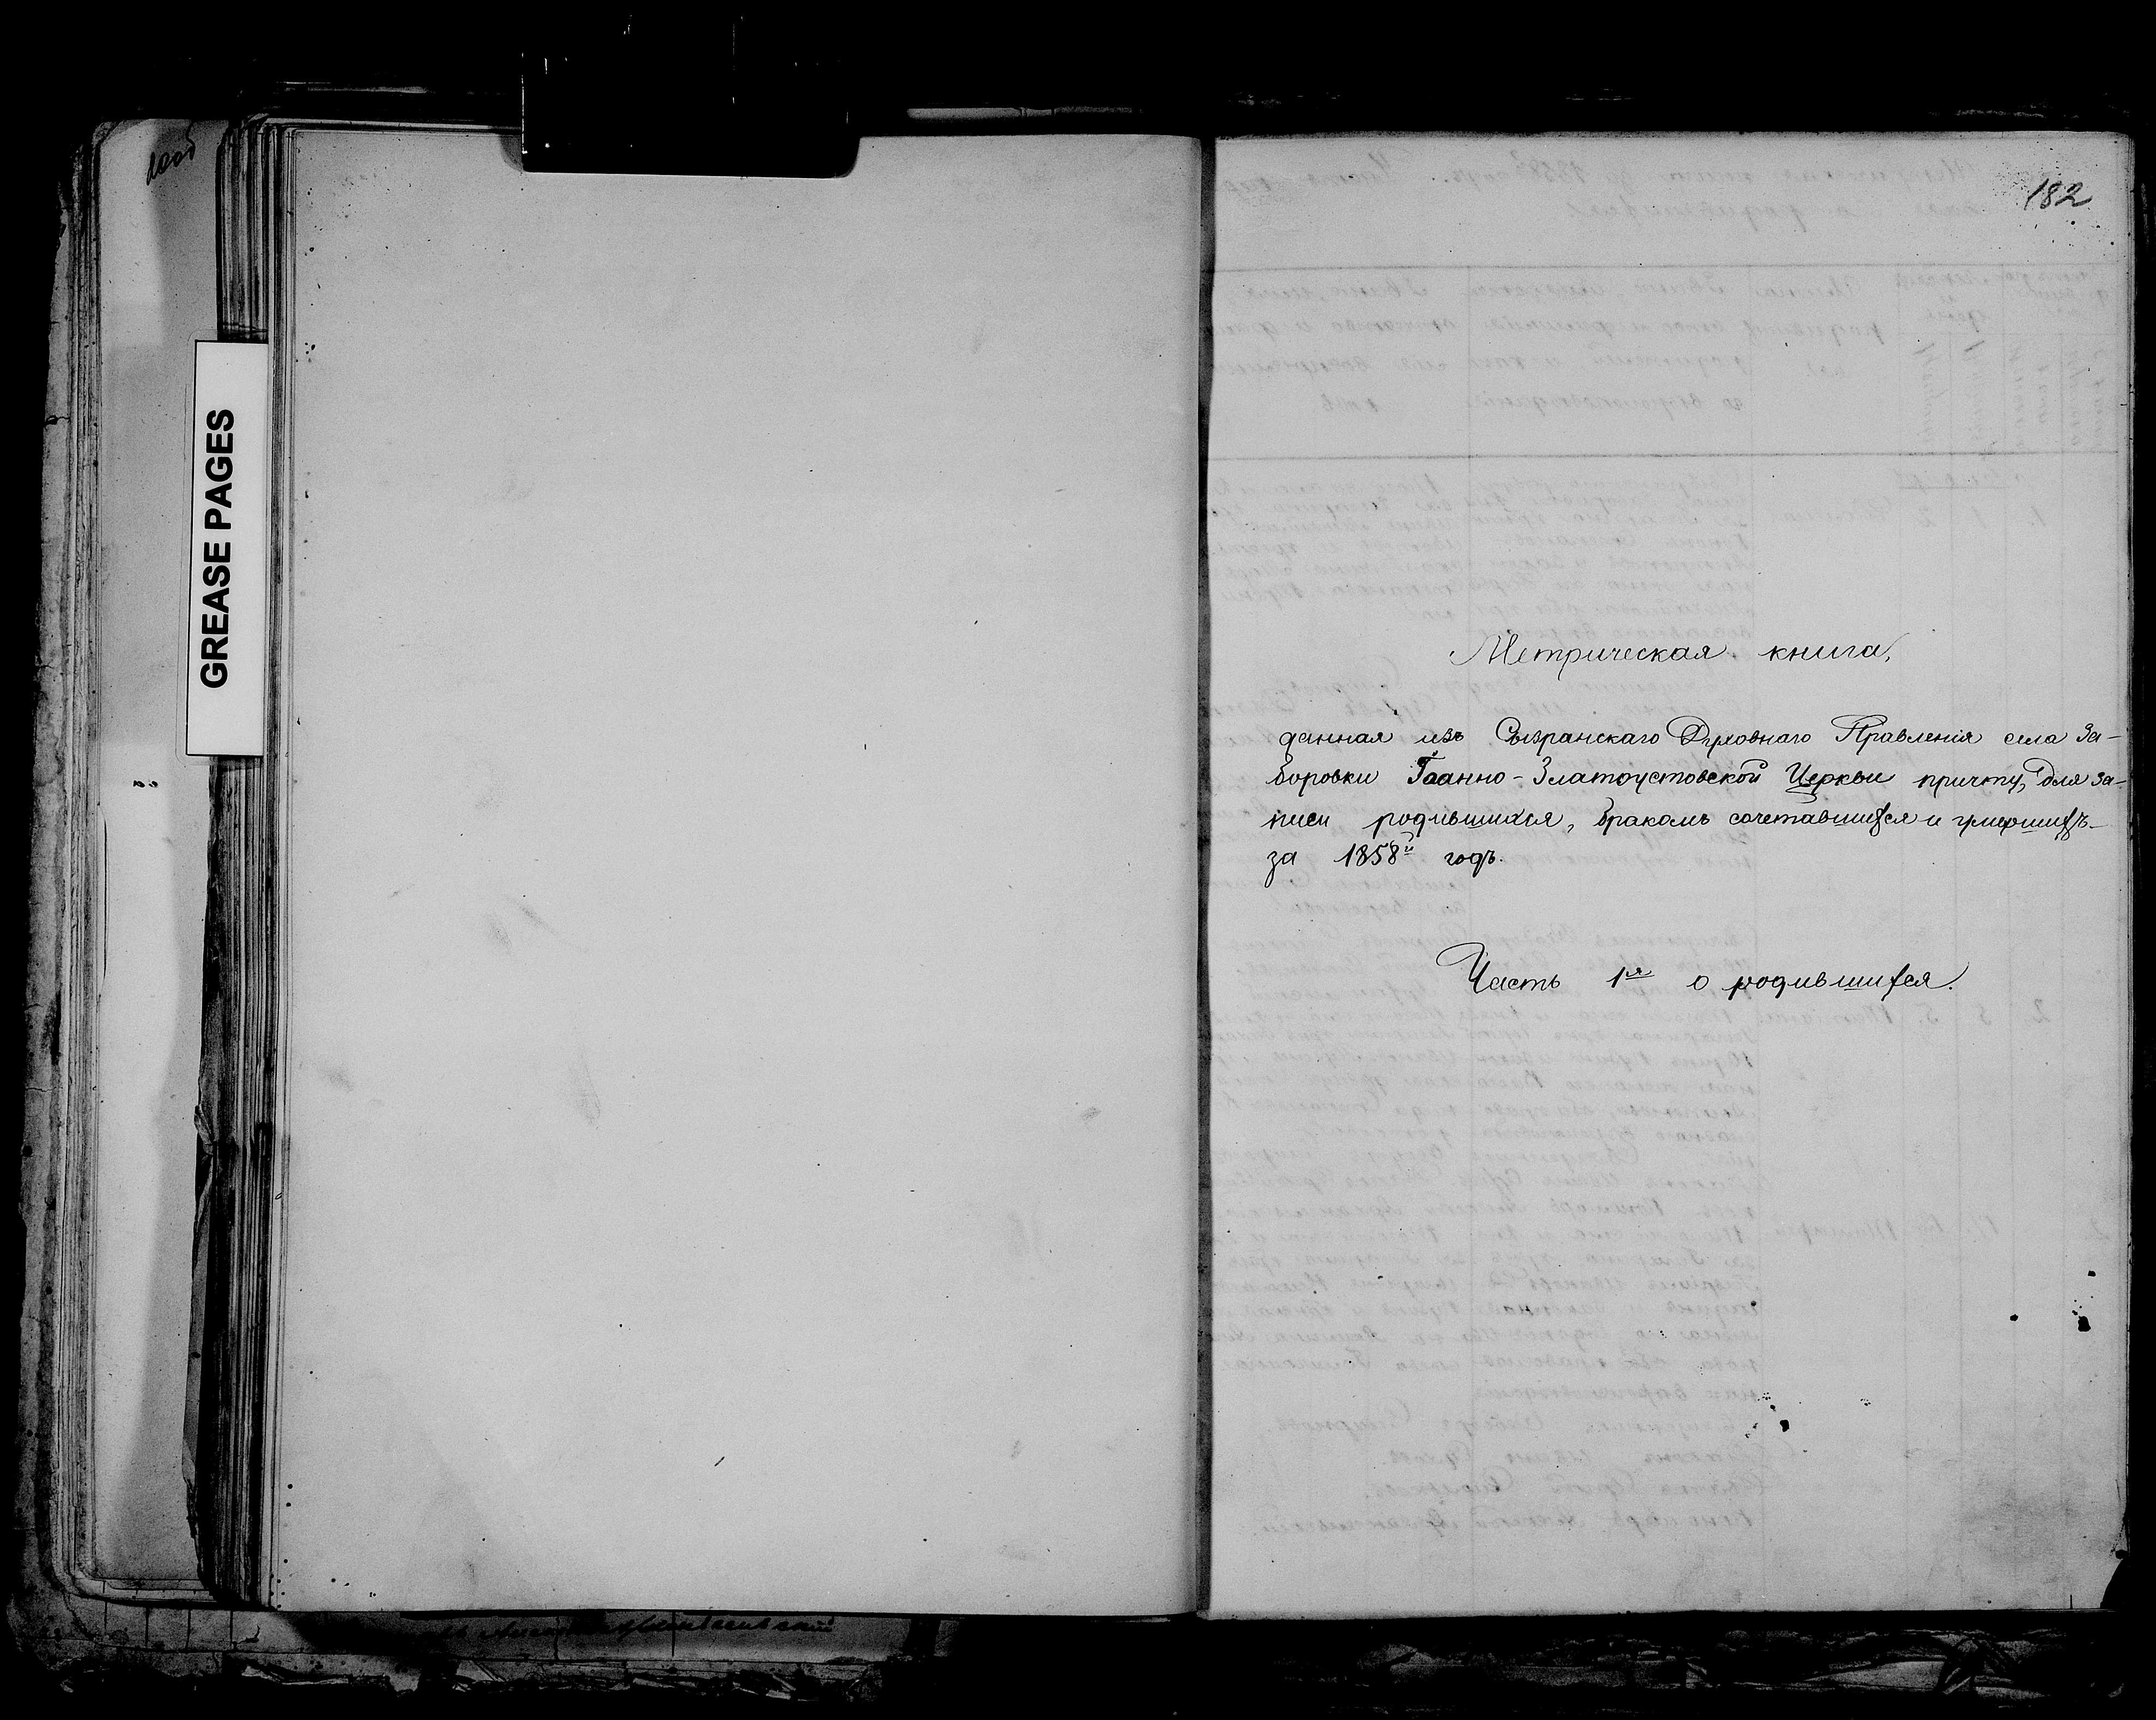 GREASE PAGES
182
Метрическая книга,
данная изъ Сызранскаго Духовнаго Правленія села За-
боровки Іоанно-Златоустовской Церкви причту, для за-
писи родившихся, бракомъ сочетавшихся и умершихъ
за 1858й годъ.
Часть 1я о родившихся.